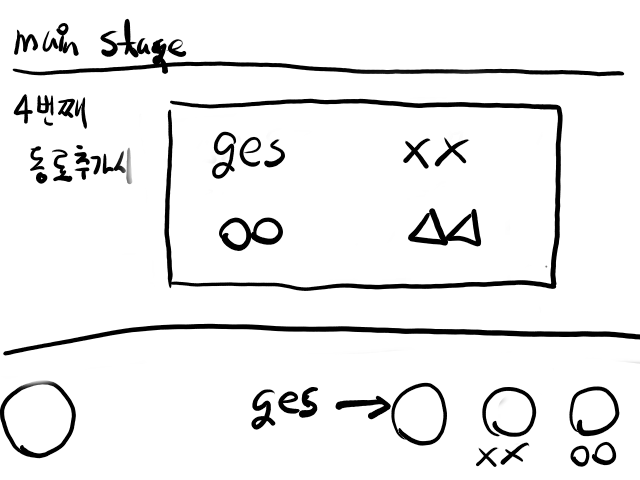 main stage
4번째
동료추가시
ges XX
OO △△
ges →
XX OO